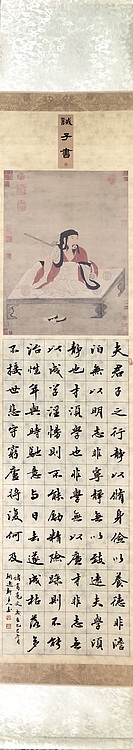 誡子書
夫君子之行靜以脩身儉以養德非澹
泊無以明志非寧靜無以致遠夫學須
靜也才須學也非學無以廣才非志無
以成學淫慢則不能勵精險躁則不能
治性年與時馳意與日去遂成枯落多
不接世悲守窮廬將復何及